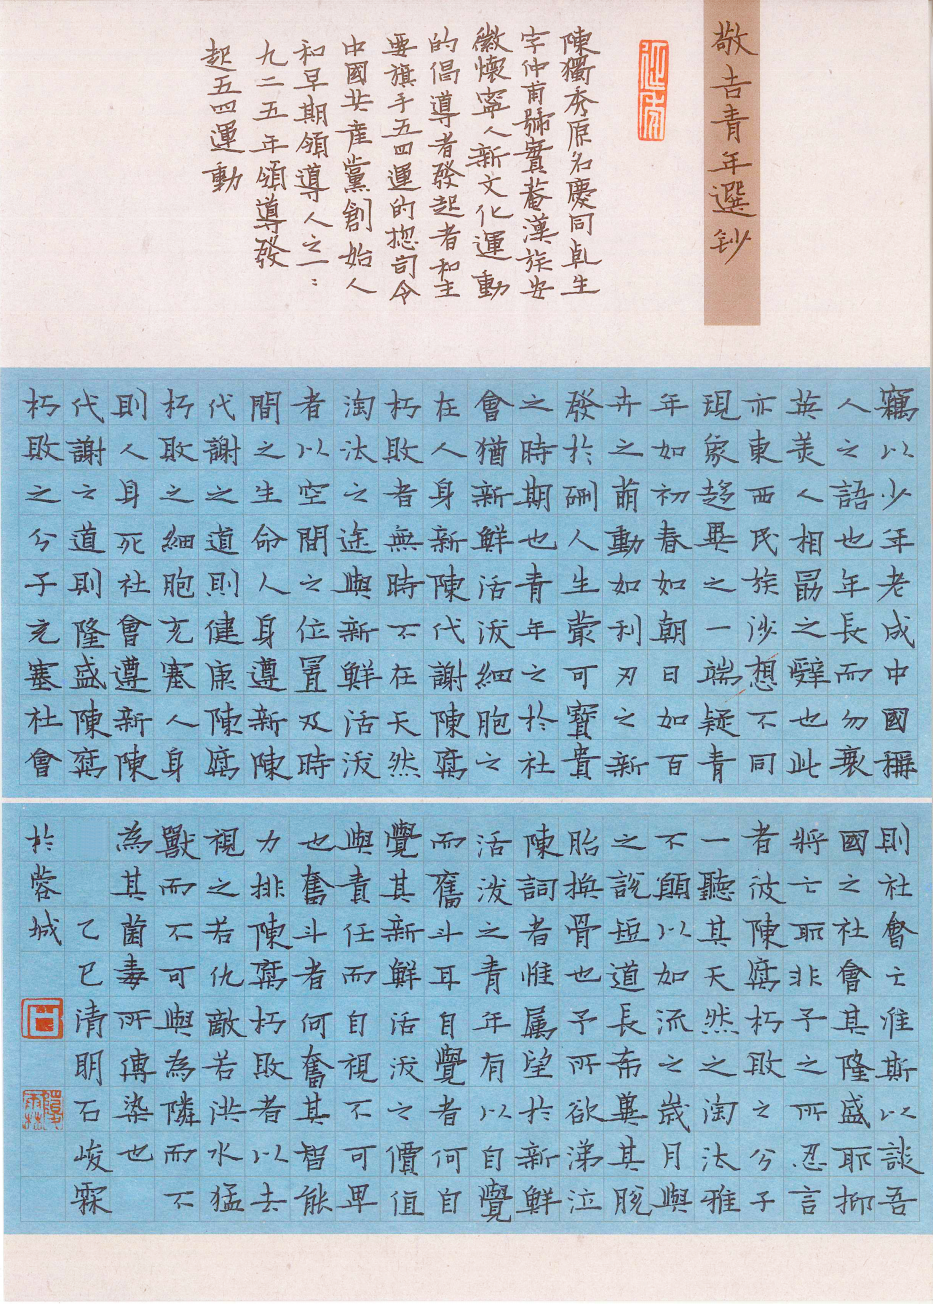 敬告青年選鈔
陳獨秀原名慶同乹生
字仲甫號實菴漢族安
徽懷寧人新文化運動
的倡導者發起者和主
要旗手五四運的揔司令
中國共產黨創始人
和早期領導人之一：
九二五年領導發
起五四運動
竊以少年老成中國稱
人之語也年長而勿衰
英美人相勗之辭也此
亦東西民族涉想不同
現象趨異之一端疑青
年如初春如朝日如百
卉之萌動如利刃之新
發於硎人生最可寶貴
之時期也青年之於社
會猶新鮮活潑細胞之
在人身新陳代謝陳腐
朽敗者無時不在天然
淘汰之途與新鮮活潑
者以空間之位置及時
間之生命人身遵新陳
代謝之道則健康陳腐
朽敗之細胞充塞人身
則人身死社會遵新陳
代謝之道則隆盛陳腐
朽敗之分子充塞社會
則社會亡准斯以談吾
國之社會其隆盛耶抑
將亡耶非予之所忍言
者彼陳腐朽敗之分子
一聽其天然之淘汰雅
不願以如流之歲月與
之說短道長希冀其脫
胎換骨也予所欲涕泣
陳詞者惟屬望於新鮮
活潑之青年有以自覺
而奮斗耳自覺者何自
覺其新鮮活潑之價值
與責任而自視不可卑
也奮斗者何奮其智能
力排陳腐朽敗者以去
視之若仇敵若洪水猛
獸而不可與為鄰而不
為其菌毒所傳染也
乙巳清明石峻霖
於蓉城
石